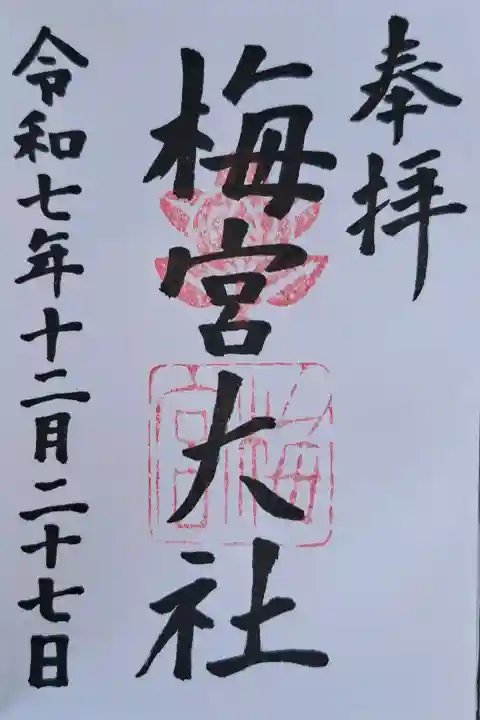 奉拝
梅宮大社
梅宮
令和七年十二月二十七日